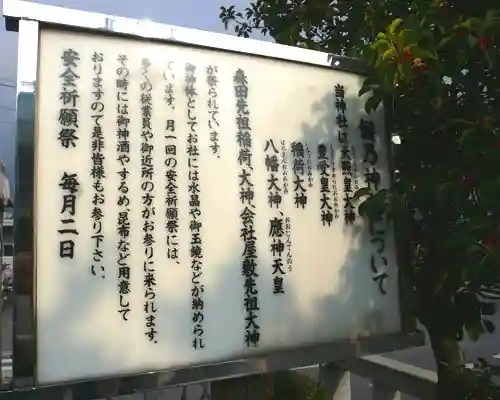 乃神
について
当神社は天照皇大神
豊受皇大神
稲荷大神
八幡大神、應神天皇
森田先祖稲荷大神、会社屋敷先祖大神
が祭られています。
御神体としてお社には水晶や御玉鏡などが納められ
ています。月一回の安全祈願祭には、
多くの従業員や御近所の方がお参りに来られます。
その時には御神酒やするめ、昆布など用意して
おりますので是非皆様もお参り下さい。
安全祈願祭 毎月二日